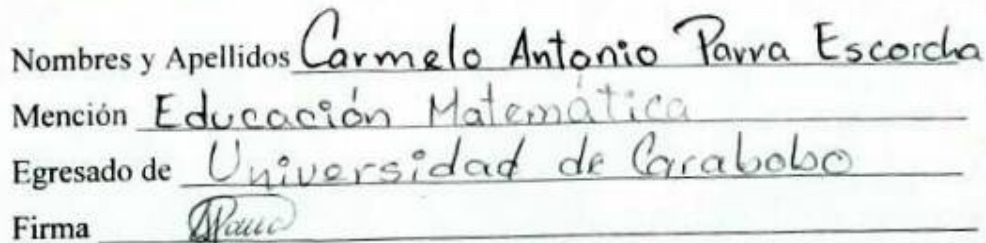 Nombres y Apellidos Carmelo Antonio Parra Escorcha
Mención Educación Matemática
Egresado de Universidad de Carabobo
Firma